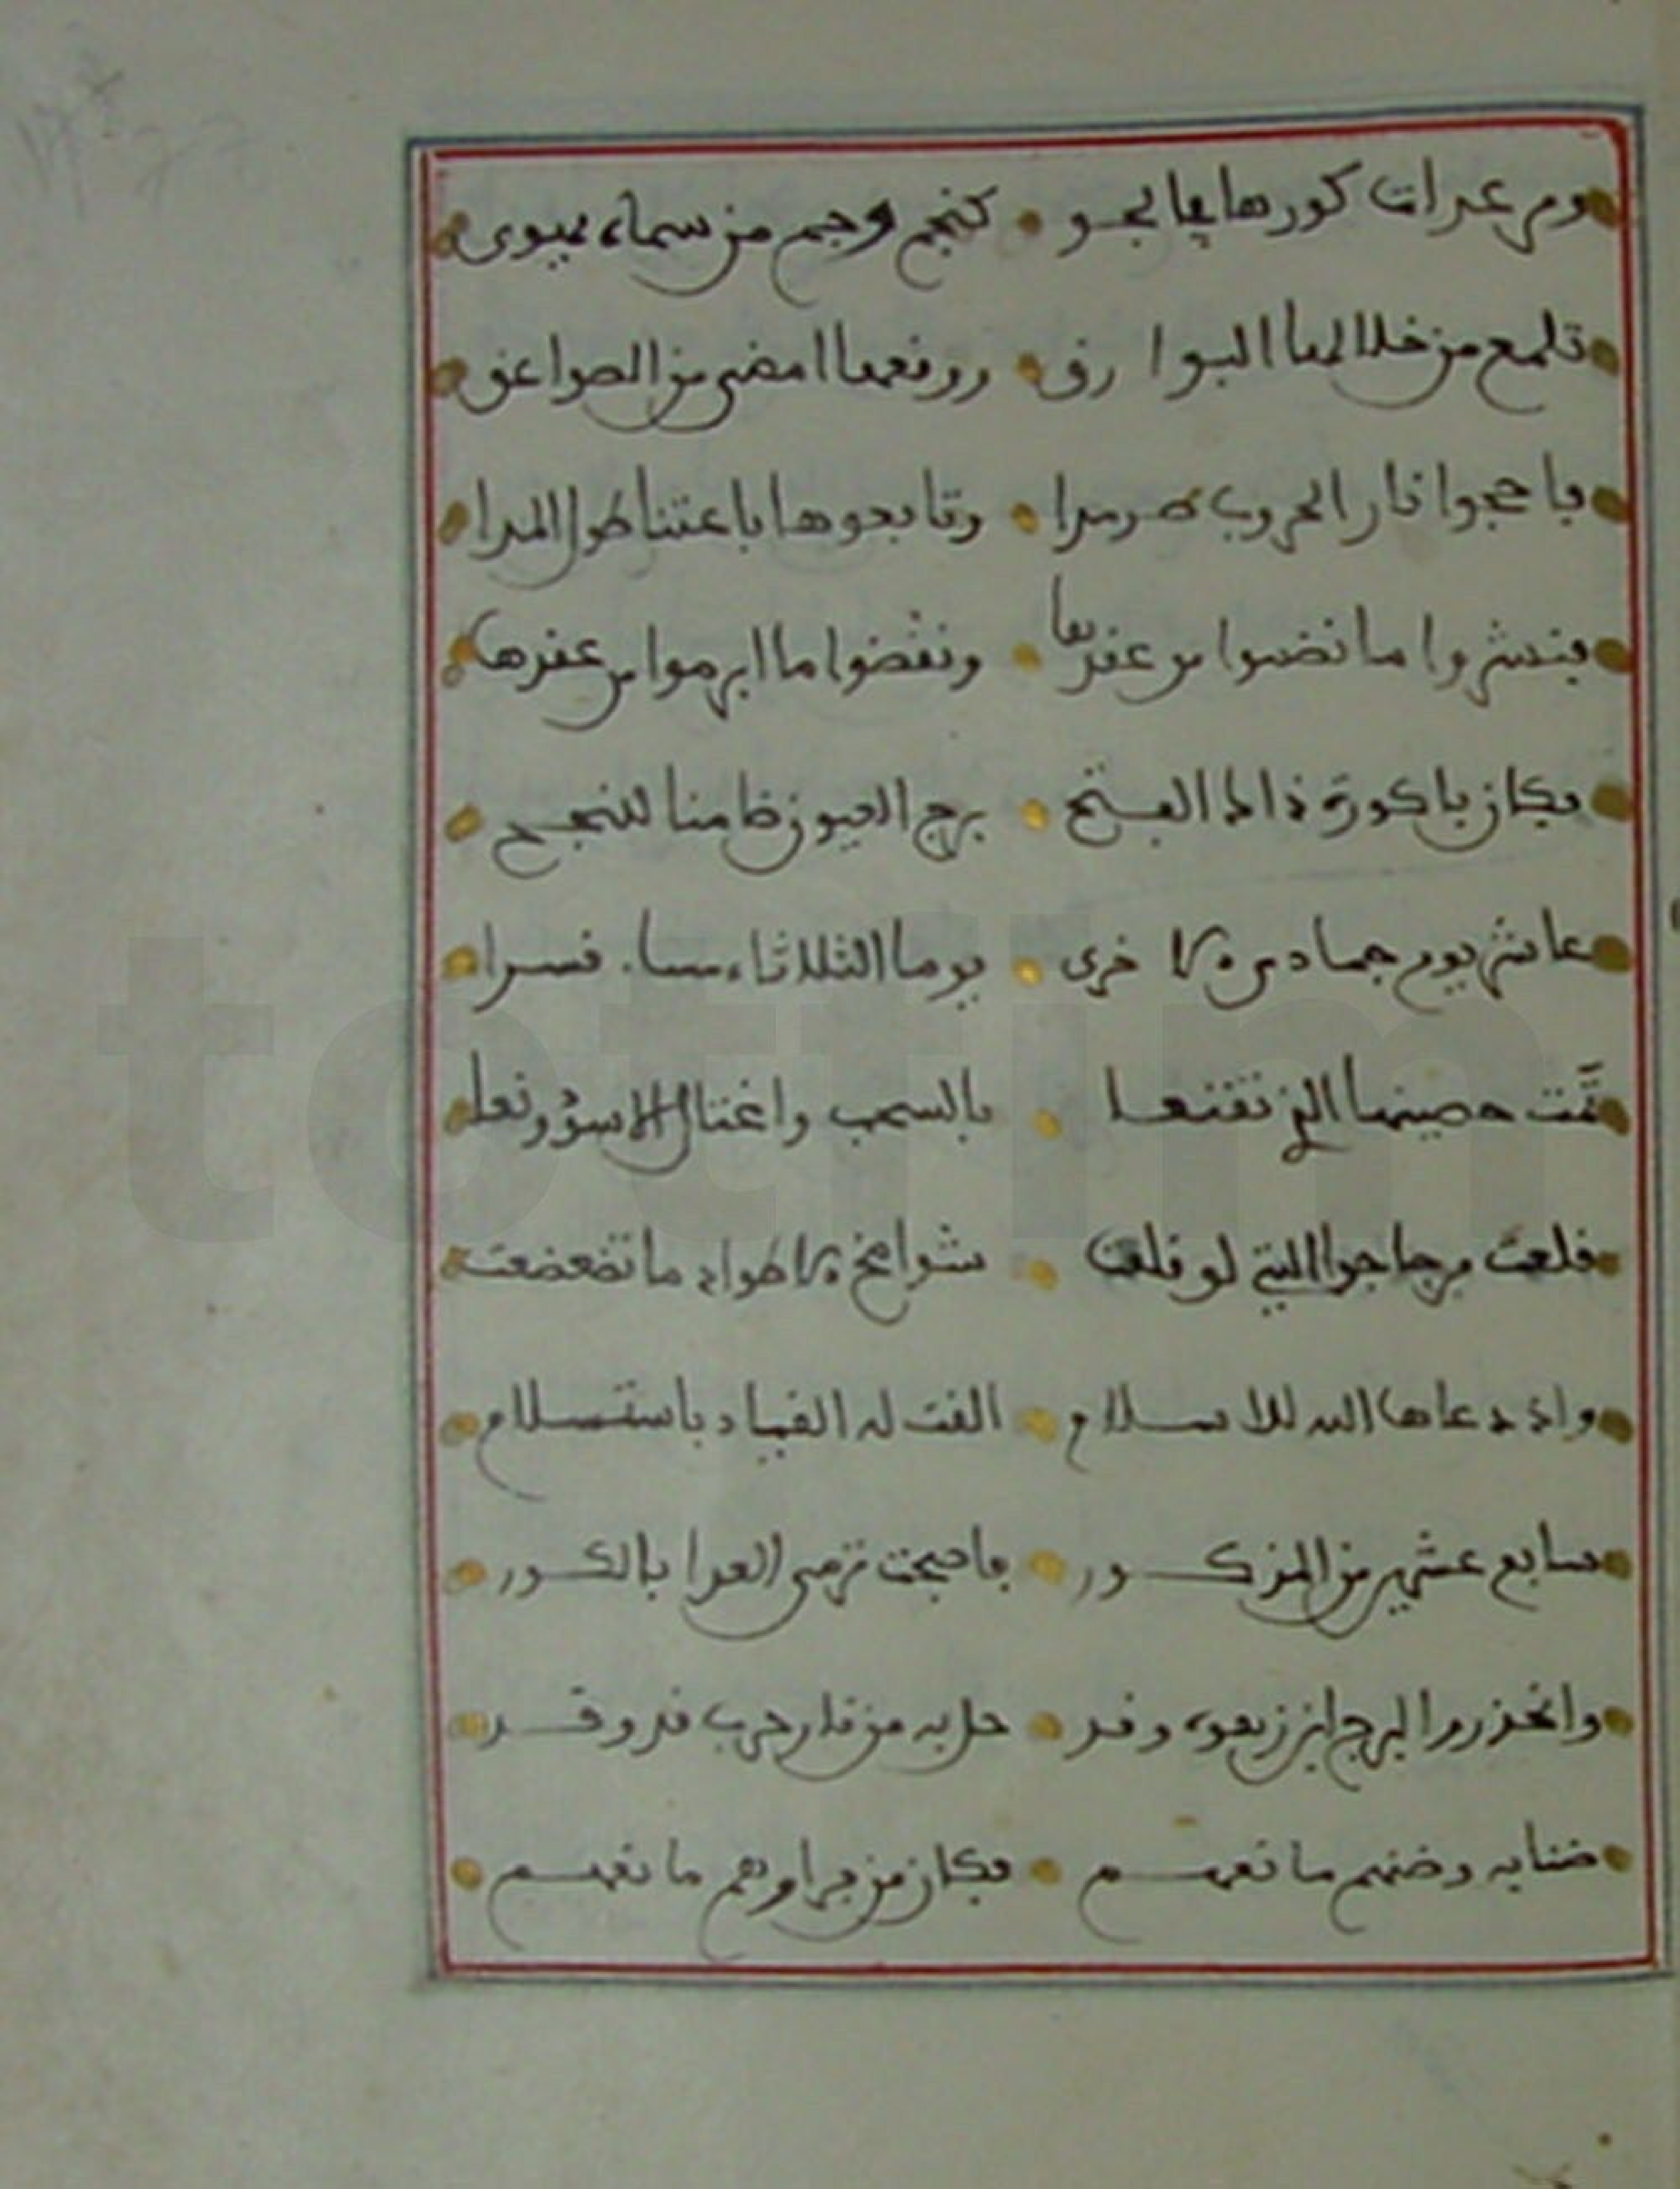 ومرعدات كورها بالجو كنجم رجم من سماء يهوى
تلمع من خلالها البوارق ووقعها امضى من الصواعق
فاججوا نار الحروب سرمدا وتابعوها باعتنا طول المدا
فنشروا ما نضدوا من عقدها ونقضوا ما ابرموا من عقدها
فكان باكورة ذاك الفتح برج العيون ضامنا للنجح
عاشر يوم جمادى الاخرى يوما الثلاثاء قسرا
ثمت حصنها الذي تقنعا بالسحب
قلعة مرجاجو التي لو قلعت شوامخ الاطواد ما تضعضعت
واذ دعاها الله للاسلام القت له القياد باستسلام
سابع عشر من المذكور فاصبحت ترمى العدا بالكور
وانحدروا لبرج ابن زهوه وقد حل به من نار حرب قد وقد
ظنا به وظنهم ما تم فكان من مرامهم ما تم